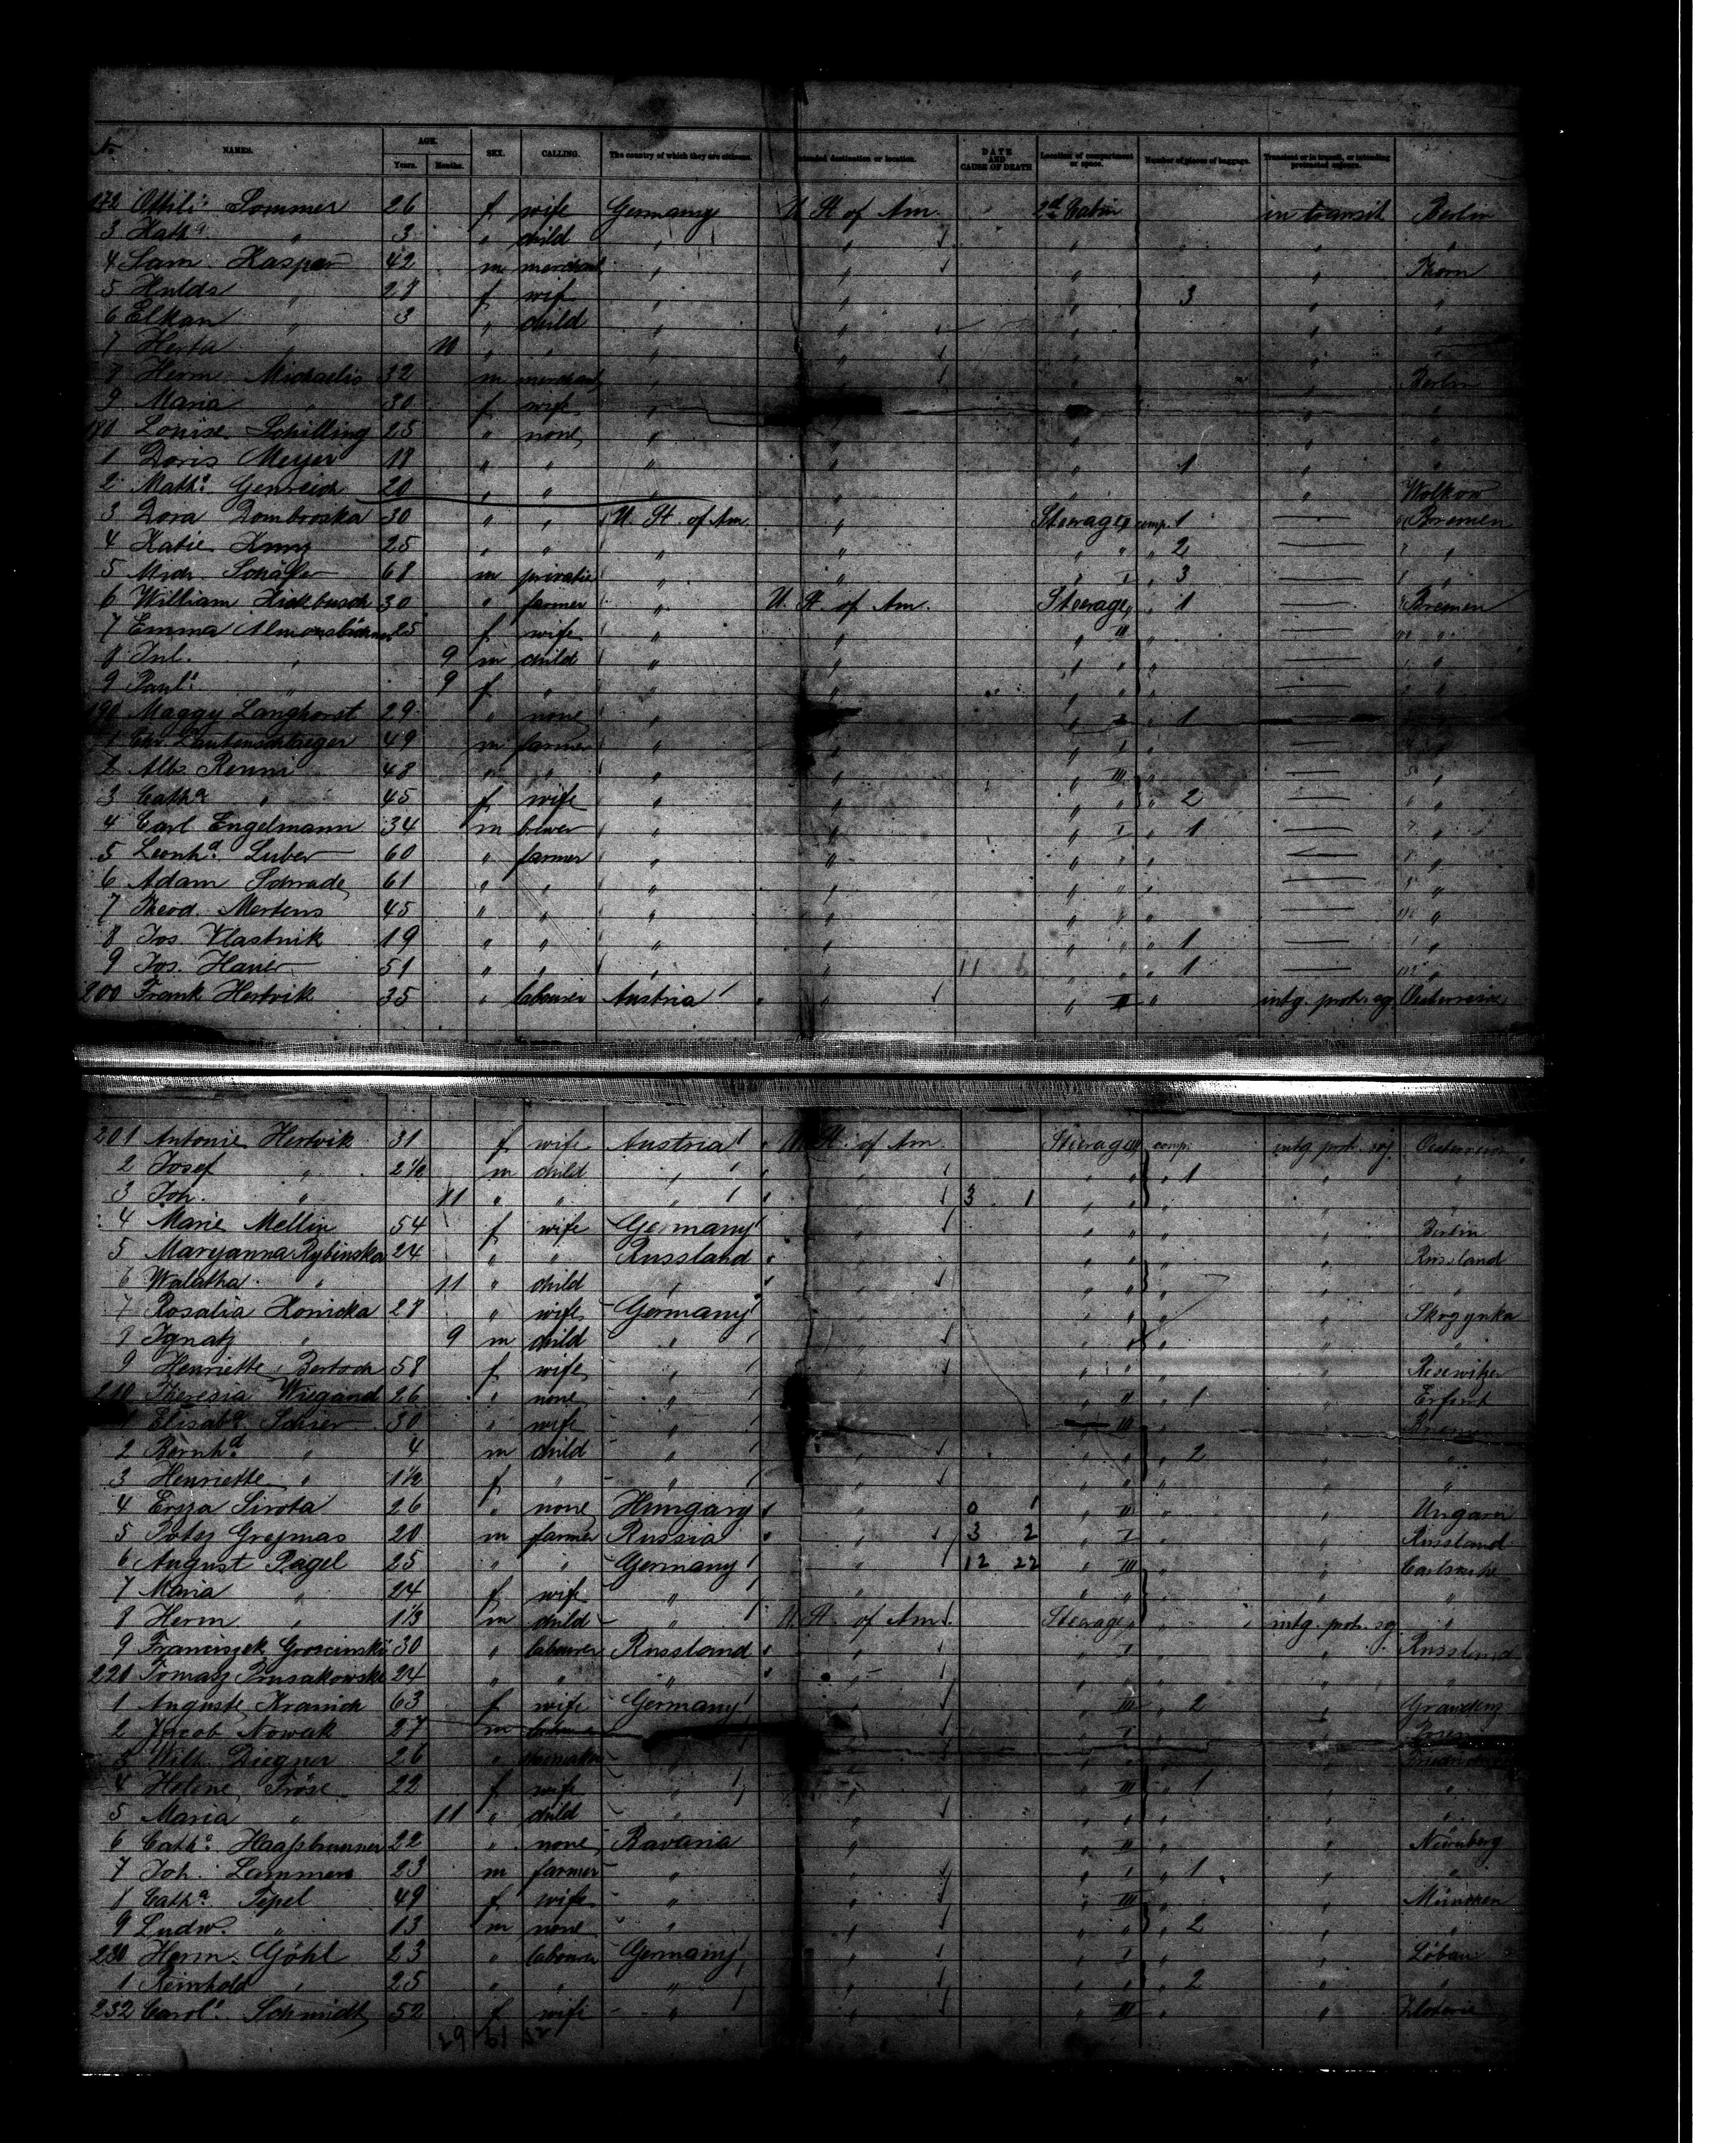 No NAMES. AGE. Years. Months. SEX. CALLING. The country of which they are citizens. Intended destination or location. DATE AND CAUSE OF DEATH Location of compartment or space. Number of pieces of baggage. Transient or in transit, or intending protracted sojourn.
172 Ottili: Sommer 26 f wife Germany U. St. of Am. 2d Cabin in transit Berlin
3 Katha " 3 " child " " " " "
4 Sam. Kasper 42 m merchant " " " " Thorn
5 Hulda " 27 f wife " " " 3 " "
6 Elkan " 3 " child " " " " "
7 Herta " 10 " " " " " " "
8 Herm. Michaelis 32 m merchant " " " " Berlin
9 Maria " 30 f wife " " " "
180 Louise Schilling 25 " none " " " " "
1 Doris Meyer 18 " " " " " 1 " "
2 Math: Genreich 20 " " " " " " Wolkow
3 Dora Dombroska 30 " " U. St. of Am. " Steerage comp. 1 — Bremen
4 Katie 25 " " " " " " " 2 — "
5 Mich. Schäfer 68 m privatie " " " I " 3 — "
6 William 30 " farmer " U. St. of Am. Steerage " 1 — Bremen
7 Emma 25 f wife " " " III " — "
8 Jul. " 9 m child " " " " " — "
9 Paul: " 9 f " " " " " " — "
190 Maggy Langhorst 29 " none " " " I " 1 — "
1 Chr. Lautenschlaeger 49 m farmer " " " I " — "
2 Alb. Renni 48 " " " " " III " — "
3 Catha " 45 f wife " " " " " 2 — "
4 Carl Engelmann 34 m brewer " " " I " 1 — "
5 Leonhd. Luber 60 " farmer " " " " " — "
6 Adam Schrade 61 " " " " " " " — "
7 Theod. Mertens 45 " " " " " " " — "
8 Jos. Vlastnik 19 " " " " " " " 1 — "
9 Jos. Hauer 51 " " " " 11 6 " " " 1 — "
200 Frank Hertvik 35 " labourer Austria " " II " intg. protr. sj. Oesterreich
201 Antonie Hertvik 31 f wife Austria U. St. of Am. Steerage III comp. intg. protr. soj. Oesterreich
2 Josef " 2½ m child " " " " " 1 " "
3 Joh. " 11 " " " " 3 1 " " " " "
4 Marie Mellin 54 f wife Germany " " " " " Berlin
5 Maryanna Rybinska 24 " " Russland " " " " " Russland
6 Walatha " 11 " child " " " " " " "
7 Rosalia Konicka 28 " wife Germany " " " " " Skrzynka
8 Ignatz " 9 m child " " " " " " "
9 Henriette 58 f wife " " " " "
210 Theresia Wiegand 26 " none " " " II " 1 " Erfurt
1 Elisabth 30 " wife " " III " " Bremen
2 Bernhd. " 4 m child " " " " " 2 " "
3 Henriette " 1½ f " " " " " " " "
4 Sirota 26 " none Hungary " 0 1 " II " " Ungarn
5 Grejmas 20 m farmer Russia " 3 2 " I " " Russland
6 August Pagel 25 " " Germany " 12 22 " III " " Carlsruhe
7 Maria " 24 f wife " " " " " " "
8 Herm. " 1½ m child " U. St. of Am. Steerage " " intg. protr. sj. "
9 Franciszek 30 " labourer Russland " " I " " Russland
220 Tomasz Prusakowski 24 " " " " " " " " "
1 Auguste Kranich 63 f wife Germany " " III " 2 " Graudenz
2 Jacob Nowak 27 m labourer " " " I " " Posen
3 Wilh. Diegner 26 " " " " " " "
4 Helene Fröse 22 f wife " " " III " 1 " "
5 Maria " 11 " child " " " " " " "
6 Catha. 22 " none Bavaria " " II " " Nürnberg
7 Joh. Lammers 23 m farmer " " " I " 1 " "
8 Catha. Tepel 49 f wife " " " III " " München
9 Ludw. " 13 m none " " " " " 2 " "
230 Herm. Göhl 23 " labourer Germany " " I " " Löbau
1 Reinhold " 25 " " " " " " " 2 " "
232 Carol: Schmidt 52 f wife " " " III " "
29 61